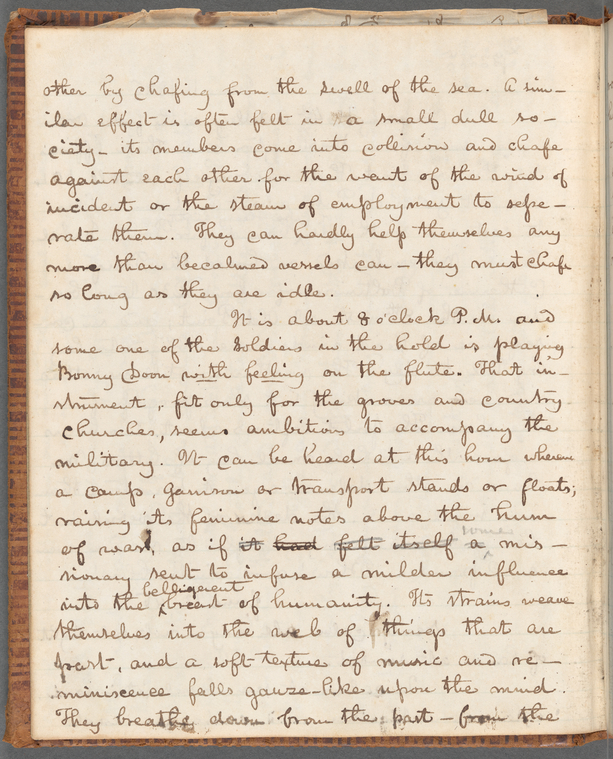 other by chafing from the swell of the sea. A sim-
ilar effect is often felt in a small dull so-
ciety - its members come into collision and chafe
against each other for the want of the wind of
incident or the steam of employment to sepe-
rate them. They can hardly help themselves any
more than becalmed vessels can - they must chafe
so long as they are idle.
It is about 8 o'clock P.M. and
some one of the soldiers in the hold is playing
Bonny Doon with feeling on the flute. That in-
strument, fit only for the groves and country
churches, seems ambitious to accompany the
military. It can be heard at this hour wherever
a camp, garrison or transport stands or floats;
raising its feminine notes above the hum
of war, as if it had felt itself a some mis-
sionary sent to infuse a milder influence
into the belligerent breast of humanity. Its strains weave
themselves into the web of things that are
past, and a soft texture of music and re-
miniscence falls gauze-like upon the mind.
They breathe down from the past - from the